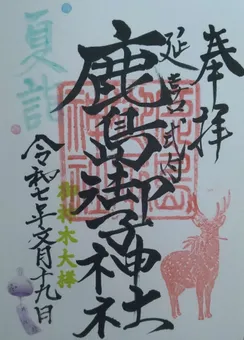 奉拝
延喜式内
鹿島御子神社
夏詣
御神木大欅
令和七年文月十九日